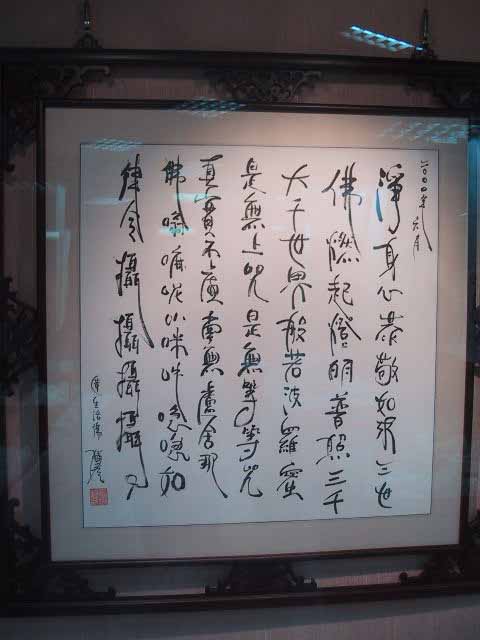 二〇〇四年元月
淨身心恭敬如來三世
佛燃起燈明普照三千
大千世界般若波羅蜜
是無上咒是無等等咒
真實不虛南無盧舍那
佛唵嘛呢叭咪吽急急如
律令攝攝攝攝